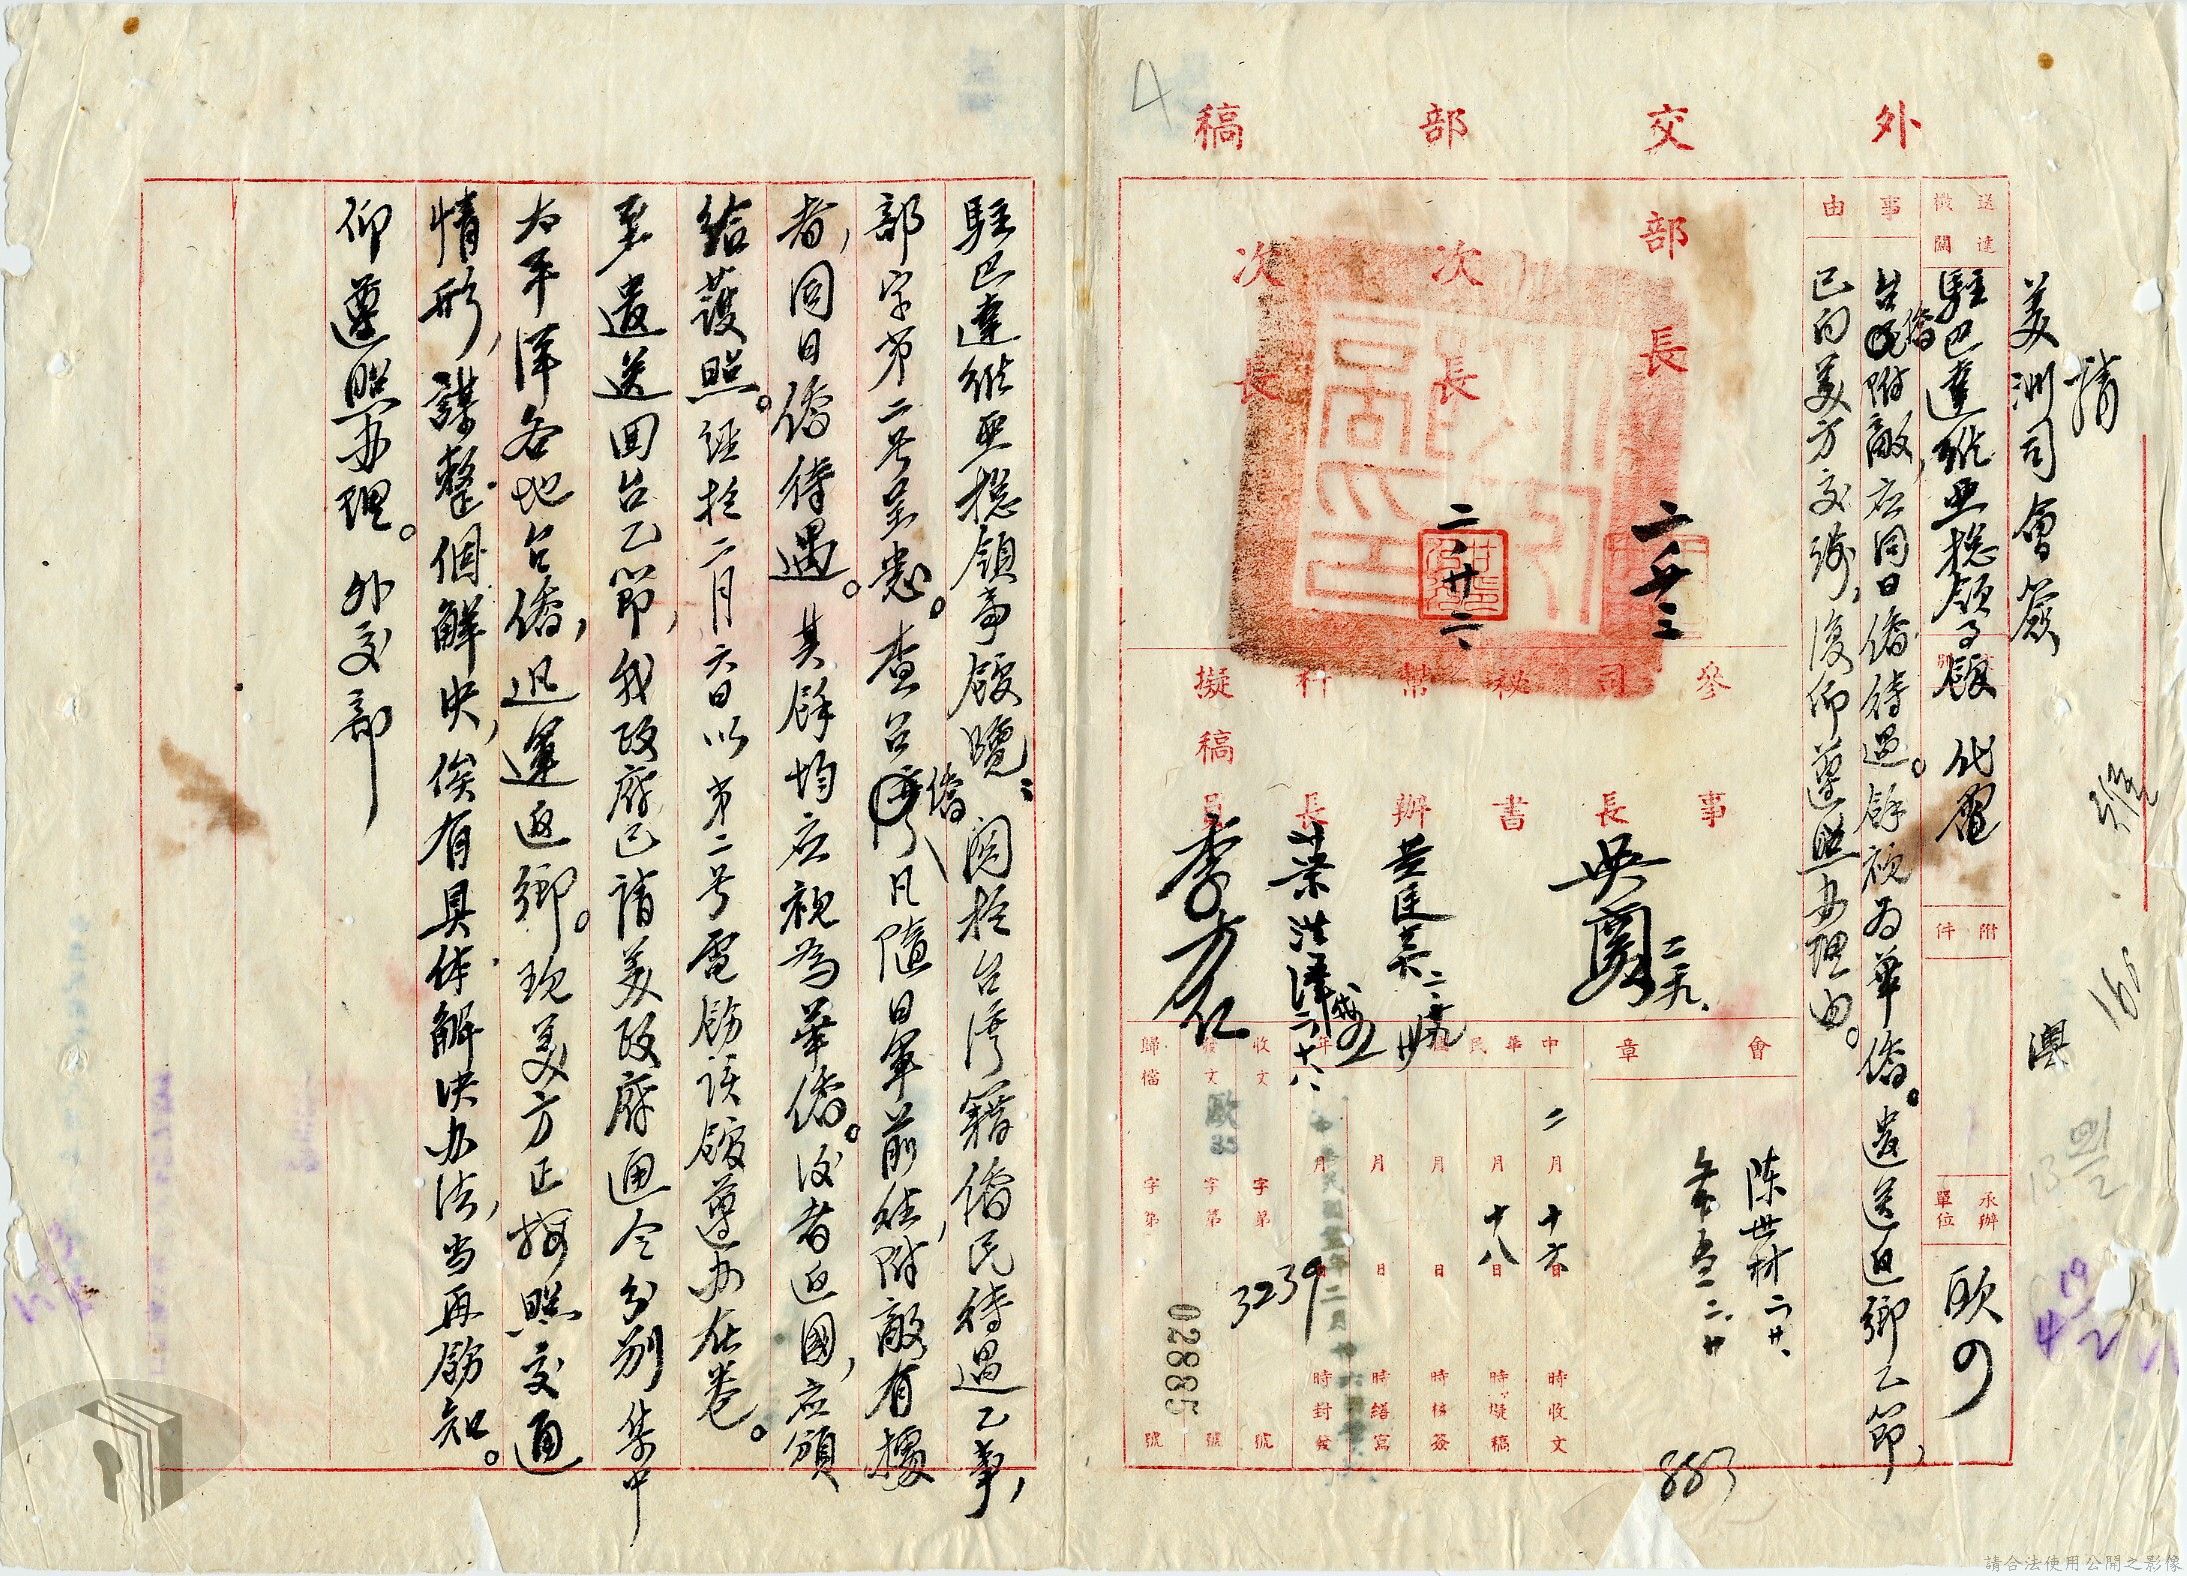 外交部稿
請
美洲司會簽
送達機關
駐巴達維亞總領事館
代電
附件
承辦單位
歐
事由
台僑附敵,应同日僑待遇。餘視为華僑。遣送返鄉乙節,
已向美方交涉,復仰遵照办理由。
部長
二、廿三
次長
二、廿六
次長
參事
司長
秘書
幫辦
科長
擬稿員
李方仁
葉洪澤
二、十八
會章
陈世材 二、廿、
二、廿
中華民國年
二月十六日時收文
月十八日時擬稿
月日時核簽
月日時繕寫
月日時封發
收文字第號
發文
歐
字第號
歸檔字第號
3239
02885
883
駐巴達維亞總領事館覽:関於台湾籍僑民待遇乙事,
部字第二号呈悉。查台僑凡隨日軍前往,附敵有據
者,同日僑待遇。其餘均应視為華僑。後者返國,应頒
給護照。经於二月六日以第二号電飭該館遵办在卷。
至遣送回台乙節,我政府已請美政府通令分別集中
太平洋各地台僑,迅運返鄉。現美方正按照交通
情形,謀整個解决,俟有具体解决办法,当再飭知。
仰遵照办理。外交部
請合法使用公開之影像